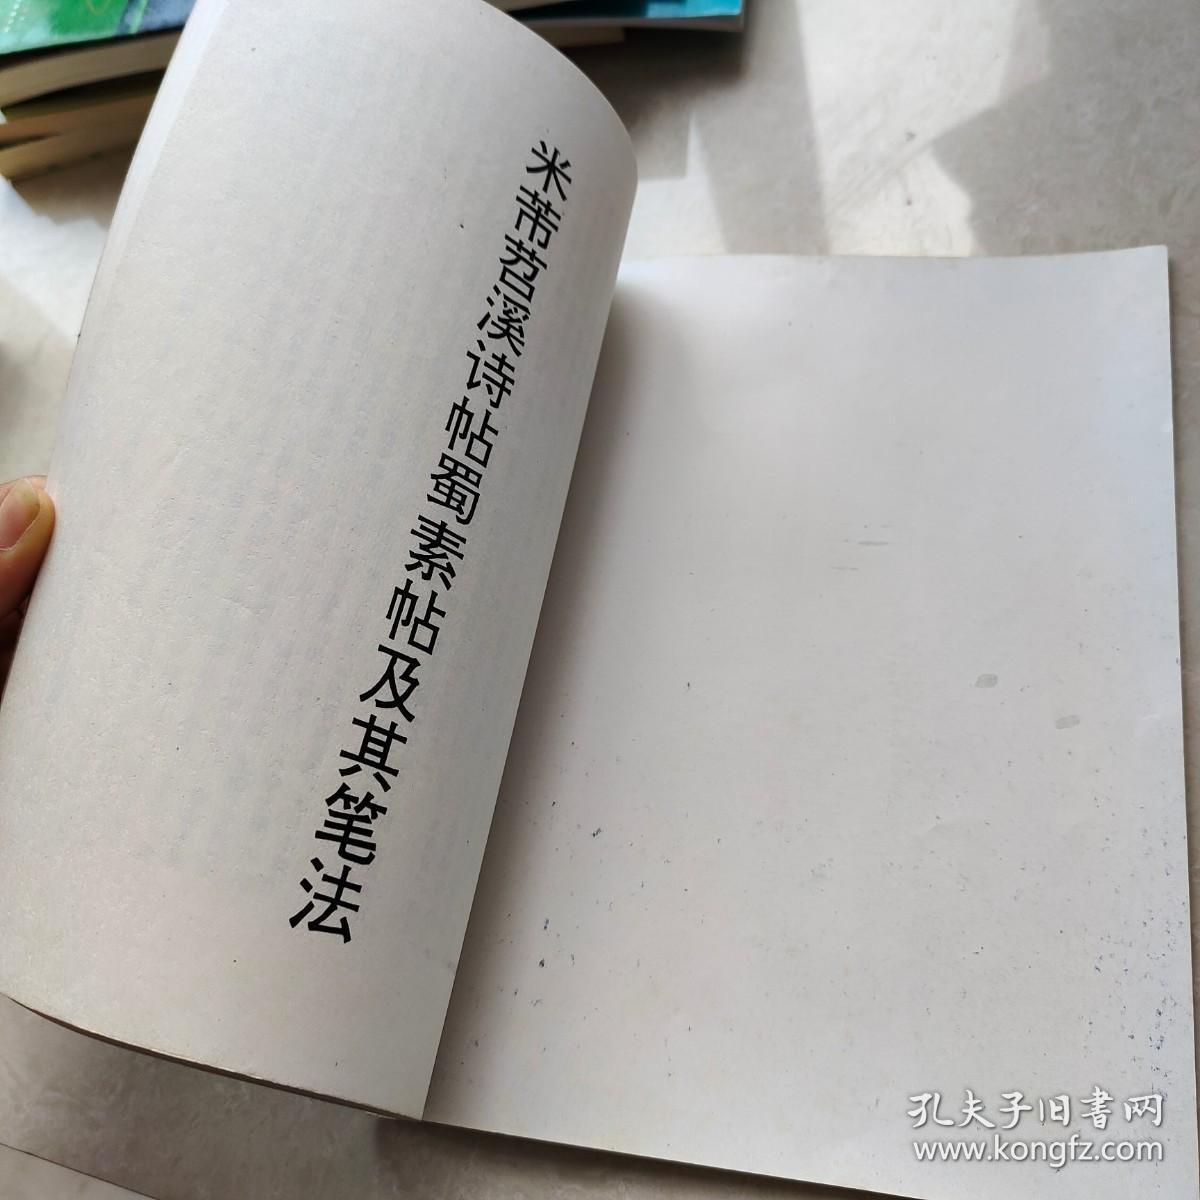 米芾苕溪诗帖蜀素帖及其笔法
孔夫子旧書网
www.kongfz.com